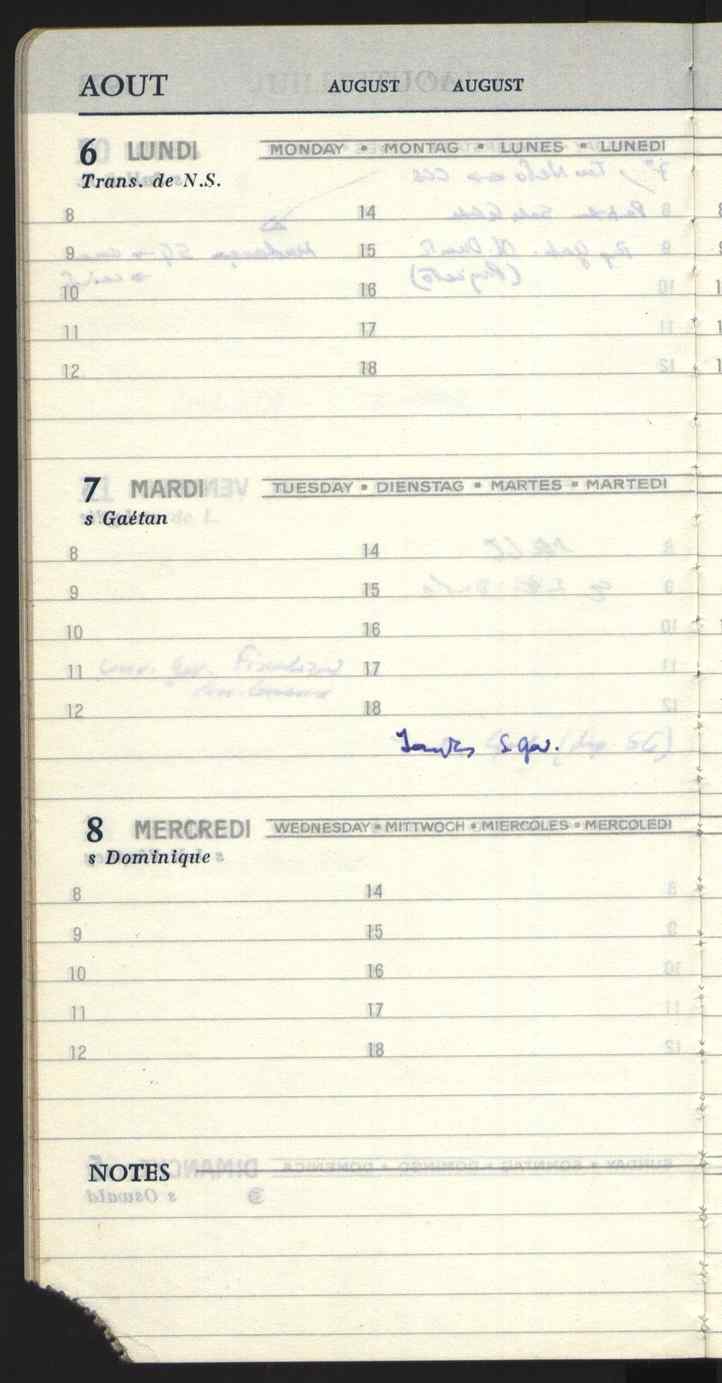 AOUT AUGUST AUGUST
6 LUNDI MONDAY • MONTAG • LUNES • LUNEDI
Trans. de N.S.
8 14
9 15
10 16
11 17
12 18
7 MARDI TUESDAY • DIENSTAG • MARTES • MARTEDI
s Gaétan
8 14
9 15
10 16
11 17
12 18
8 MERCREDI WEDNESDAY • MITTWOCH • MIERCOLES • MERCOLEDI
s Dominique
8 14
9 15
10 16
11 17
12 18
NOTES